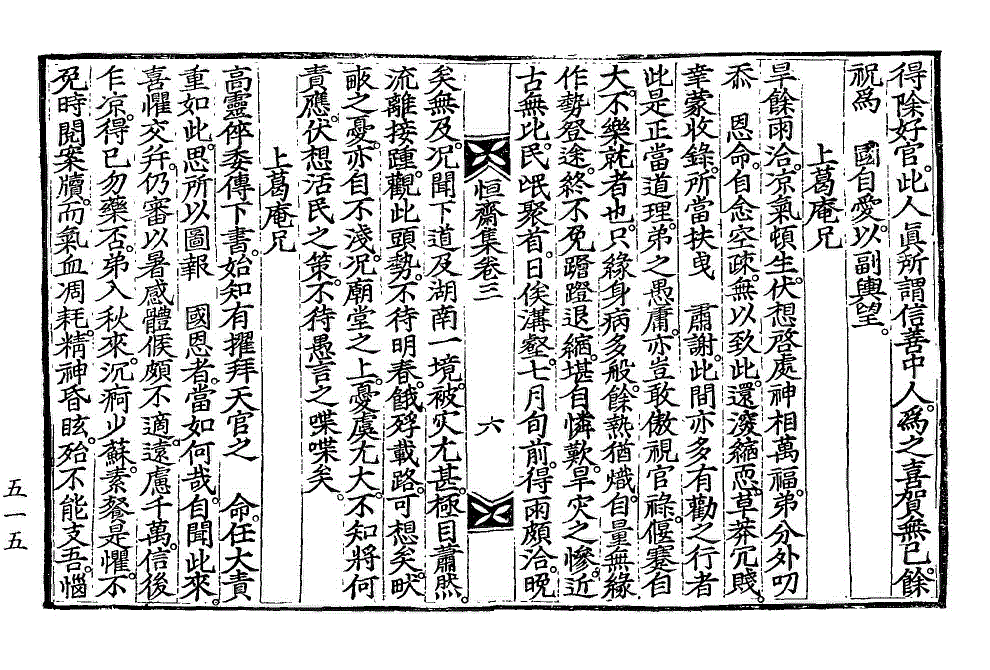 得除好官。此人眞所謂信善中人。爲之喜賀無已。餘
祝爲 國自愛。以副輿望。
上葛庵兄
旱餘雨洽。凉氣頓生。伏想啓處神相萬福。弟分外叨
忝 恩命。自念空疎。無以致此。還溲縮恧。草莽冗賤。
幸蒙收錄。所當扶曳 肅謝。此間亦多有勸之行者
此是正當道理。弟之愚庸。亦豈敢傲視官祿。偃蹇自
大。不樂就者也。只緣身病多般。餘熱猶熾。自量無緣
作勢登途。終不免蹭蹬退縮。堪自憐歎。旱灾之慘。近
古無比。民氓聚首。日俟溝壑。七月旬前。得雨頗洽。晩
恒齋集卷三
六
矣無及。况聞下道及湖南一境。被灾尤甚。極目蕭然。
流離接踵。觀此頭勢。不待明春。餓殍載路。可想矣。畎
畒之憂。亦自不淺。况廟堂之上。憂虞尤大。不知將何
責應。伏想活民之策。不待愚言之喋喋矣。
上葛庵兄
高靈倅奉傳下書。始知有擢拜天官之 命。任大責
重如此。思所以圖報 國恩者。當如何哉。自聞此來。
喜懼交幷。仍審以暑感體候頗不適。遠慮千萬。信後
乍凉。得已勿藥否。弟入秋來。沉痾少蘇。素餐是懼。不
免時閱案牘。而氣血凋耗。精神昏眩。殆不能支吾。惱
五一五